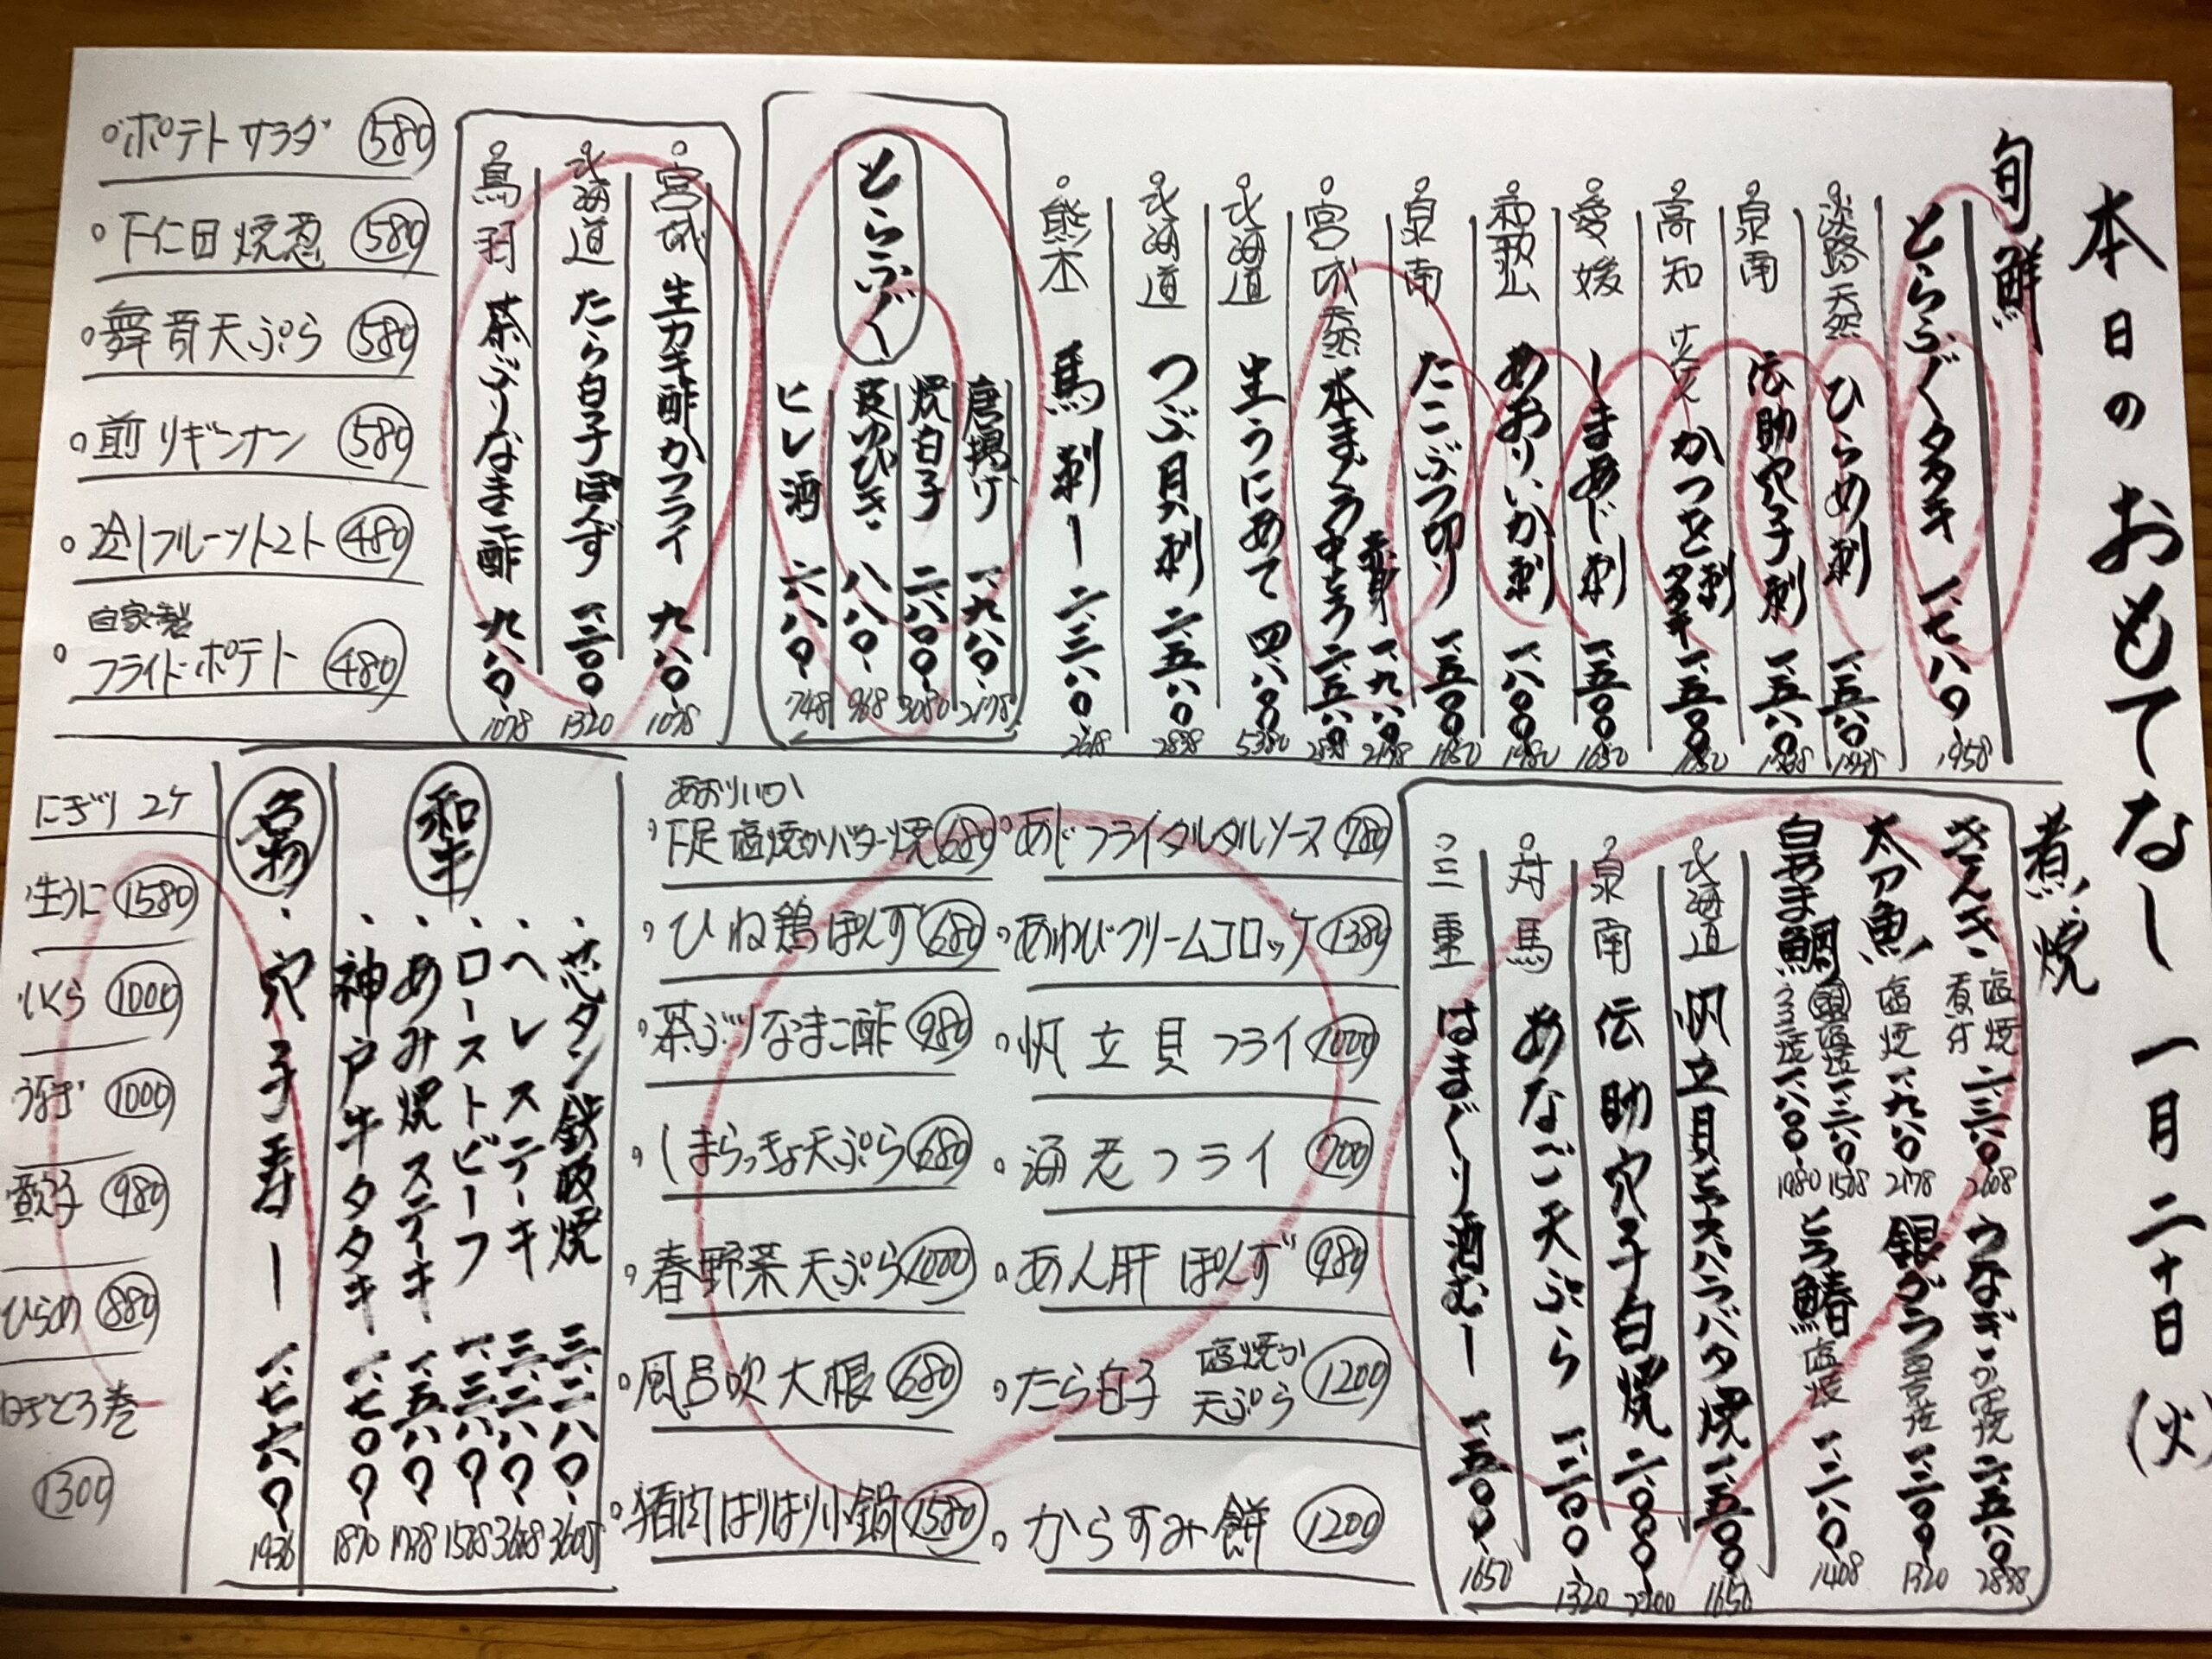 本日のおもてなし 一月二十日(火)
旬鮮
とらふぐタタキ 一、七八〇 1958
淡路 天然 ひらめ刺 一、五八〇
泉南 伝助穴子刺 一、五八〇
高知 かつを刺 タタキ 一、五〇〇
愛媛 しまあじ刺 一、五〇〇 1650
和歌山 あおりいか刺 一、八〇〇 1980
泉南 たこぶつ切り 一、五〇〇 1650
宮城 天然 本まぐろ 赤身 一、九八〇 2178
中とろ 二、五八〇 2838
北海道 生うにあて 四、八〇〇
北海道 つぶ貝刺 二、五八〇 2838
熊本 馬刺し 二、三八〇 2618
とらふぐ
唐揚げ 一、九八〇 2178
焼白子 二、八〇〇 3080
皮ゆびき 八八〇 968
ヒレ酒 六八〇 748
宮城 生カキ酢かフライ 九八〇 1078
北海道 たら白子ぽんず 一、二〇〇 1320
鳥羽 茶ぶりなまこ酢 九八〇 1078
ポテトサラダ 580
下仁田焼葱 580
舞茸天ぷら 580
煎りギンナン 580
フルーツトマト 480
自家製
フライドポテト 480
煮・焼
きんき 塩焼 煮付 二、三八〇 2608
太刀魚 塩焼 一、九八〇 2178
白あま鯛 塩焼 一、三八〇 1518
一、八〇〇 1980
うなぎ 二、五八〇 2838
銀ダラ 一、二〇〇 1320
とろ鯖 塩焼 一、二八〇 1408
北海道 帆立貝とアスパラバタ焼 一、五〇〇 1650
泉南 伝助穴子白焼 二、〇〇〇 2200
対馬 あなご天ぷら 一、二〇〇 1320
三重 はまぐり酒むし 一、五〇〇 1650
あじフライタルタルソース 780
あわびクリームコロッケ 1380
帆立貝フライ 1000
海老フライ 700
あん肝ぽんず 980
たら白子 塩焼か天ぷら 1200
からすみ餅 1200
あおりいか
下足 塩焼かバター焼 680
ひね鶏ぽんず 680
茶ぶりなまこ酢 980
しまらっきょ天ぷら 680
春野菜天ぷら 1000
風呂吹大根 680
猪肉はりはり小鍋 1580
和牛
芯タン鉄板焼 三、二八〇 3608
ヘレステーキ 三、二八〇 3608
ローストビーフ 一、三八〇 1518
あみ焼ステーキ 一、五八〇 1738
神戸牛タタキ 一、七〇〇 1870
名物
穴子寿し 一、七六〇 1936
にぎり 2ケ
生うに 1580
いくら 1000
うなぎ 1000
穴子 980
ひらめ 880
ねぎとろ巻
1300